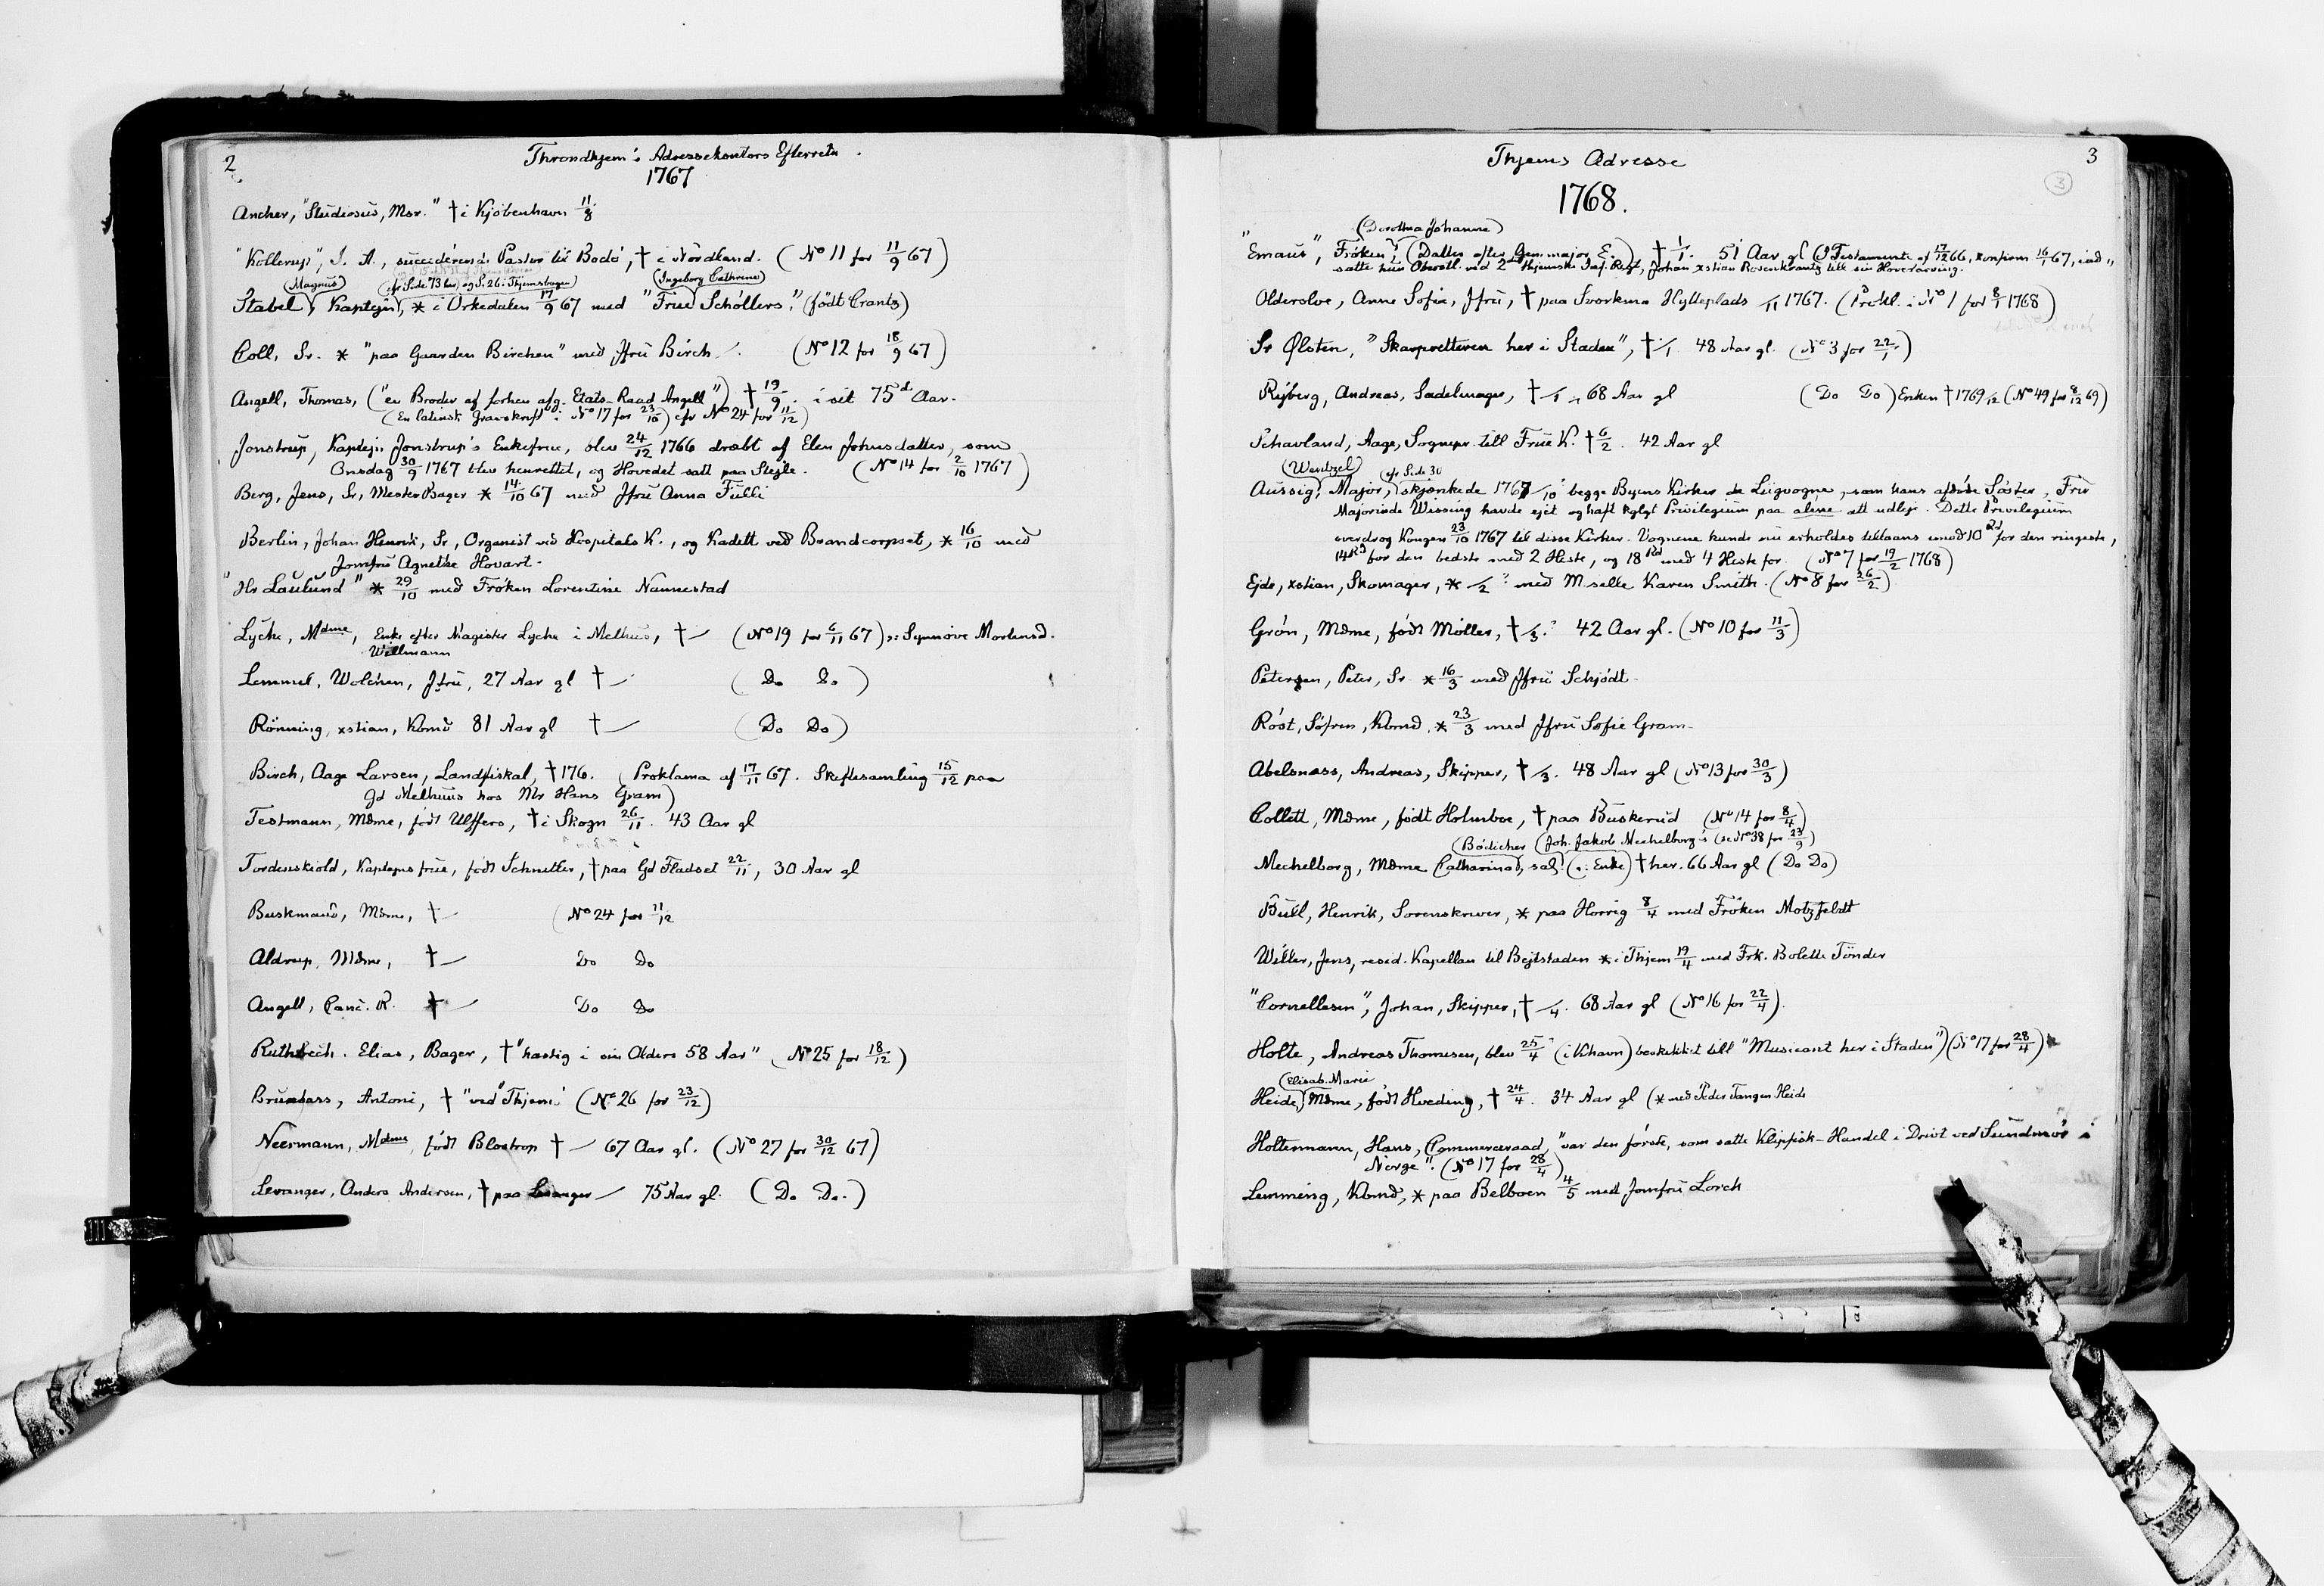 2
Throndhjem's Adressekontors Efterretn.
1767
Ancher, "Studiosus, Msr." † i Kjöbenhavn 11/8
"Kollerup", J. A., succiderend. Pastor til Bodö, † i Nordland. (No 11 for 11/9 67)
(Magnus) (cfr Side 73 her) og S. 26 i Thjemsbogen) (Ingeborg Cathrine)
Stabel, Kaptejn, * i Orkedalen 17/9 67 med "Frue Schöllers", (født Crantz)
Coll, Sr. * "paa Gaarden Birchen" med Jfru Birch -. (No 12 for 18/9 67)
Angell, Thomas, ("en Broder af forhen afg. Etats-Raad Angell") † 19/9. i sit 75d Aar.
(En latinsk Gravskrift i No 17 for 23/10) cfr No 24 for 11/12)
Jonstrup, Kaptejn Jonstrup's Enkefrue, blev 24/12 1766 dræbt af Elen Johnsdatter, som
Onsdag 30/9 1767 blev henrettet, og Hovedet satt paa Stejle. (No 14 for 2/10 1767)
Berg, Jens, Sr, Mester Bager * 14/10 67 med Jfru Anna Fülli
Berlin, Johan Henrik, Sr, Organist ved Hospitals K., og Kadett ved Brandcorpset, * 16/10 med
Jomfru Agnethe Hovart.
"Hr Laulund" * 29/10 med Fröken Lorentine Nannestad
Lyche, Mdme, Enke efter Magister Lyche i Melhus, † - (No 19 for 6/11 67) ɔ: Synnöve Mortensd.
Willmann
Lemmel, Wolchen, Jfru, 27 Aar gl † - (Do Do)
Rönning, xstian, Kbmd 81 Aar gl † - (Do Do)
Birch, Aage Larsen, Landfiskal, † 176. (Proklama af 17/11 67. Skiftesamling 15/12 paa
Gd Melhuus hos Mr Hans Gram)
Testmann, Mdme, født Ulffers, † i Skogn 26/11. 43 Aar gl
Tordenskiold, Kaptejns frue, født Schnitler, † paa Gd Fladset 22/11, 30 Aar gl
Buskmand, Mdme, † - (No 24 for 11/12
Aldrup, Mdme, † - Do Do
Angell, Canc. R. † - Do Do
Ruthbech. Elias, Bager, † "hastig i sin Alders 58 Aar" (No 25 for 18/12)
Antoni, † "ved Thjem" (No 26 for 23/12)
Neermann, Mdme, født Blostrop † - 67 Aar gl. (No 27 for 30/12 67)
Levanger, Anders Andersen, † paa Levanger - 75 Aar gl. (Do Do.)
3
3
Thjems Adresse
1768.
(Dorothea Johanne)
"Emaus", Fröken, (Datter efter Gen.major E.) † 1/1. 51 Aar gl (I Testamente af 17/12 66, konfirm 16/1 67, ind"
satte hun Oberstl. ved 2det Thjemske Inf. Regt, Johan xstian Rosenkrantz till sin Hovedarving.
Oldersloe, Anne Sofie, Jfru, † paa Svorkmo Hytteplads /11 1767. (Prokl. i No 1 for 8/1 1768)
Sr Ølsten, "Skarpretteren her i Staden", † /1 48 Aar gl. (No 3 for 22/1)
Ryberg, Andreas, Sadelmager, † /1 68 Aar gl (Do Do) Enken † 1769 /12 (No 49 for 8/12 69)
Schavland, Aage, Sognepr. till Frue K. † 6/2. 42 Aar gl
(Wentzel) cfr Side 30
Aussig, Major, skjænkede 1767 /10 begge Byens Kirker de Ligvogne, som hans afdöde Söster, Fru
Majorinde Wissing havde ejet og haft kglgt Privilegium paa alene att udleje. Dette Privilegium
overdrog Kongen 23/10 1767 til disse Kirker. Vognene kunde nu erholdes tillaans imod 10 Rd for den ringeste,
14 Rd for den bedste med 2 Heste, og 18 Rd med 4 Heste for. (No 7 for 19/2 1768)
Ejde, xstian, Skomager, * /2 med M.selle Karen Smith. (No 8 for 26/2)
Grön, Mdme, født Möller, † /3. 42 Aar gl. (No 10 for 11/3)
Petersen, Peter, Sr * 16/3 med Jfru Schjödt
Röst, Söfren, Kbmd, * 23/3 med Jfru Sofie Gram
Abelsnæs, Andreas, Skipper, † /3. 48 Aar gl (No 13 for 30/3)
Collett, Mdme, født Holmboe, † paa Buskerud (No 14 for 8/4)
(Bödicher (Joh. Jakob Mechelborg's (se No 38 for 23/9)
Mechelborg, Mdme Catharina, sal. (ɔ: Enke) † her. 66 Aar gl (Do Do)
Bull, Henrik, Sorenskriver, * paa Horrig 8/4 med Fröken Motzfeldt
Willer, Jens, resid. Kapellan til Bejtstaden * i Thjem 19/4 med Frk. Bolette Tönder
"Cornellesen", Johan, Skipper, † /4. 68 Aar gl (No 16 for 22/4).
Holte, Andreas Thomesen, blev 25/4 (i Khavn) beskikket till "Musicant her i Staden") (No 17 for 28/4)
(Elisab. Marie
Heide, Mdme, født Hveding, † 24/4. 34 Aar gl (* med Peder Tangen Heide
Holtermann, Hans, Commerceraad, "var den förste, som satte Klippfisk-Handel i Drivt ved Sundmör i
Norge". (No 17 for 28/4)
Lemming, Kbmd, * paa Belboen 4/5 med Jomfru Lorch